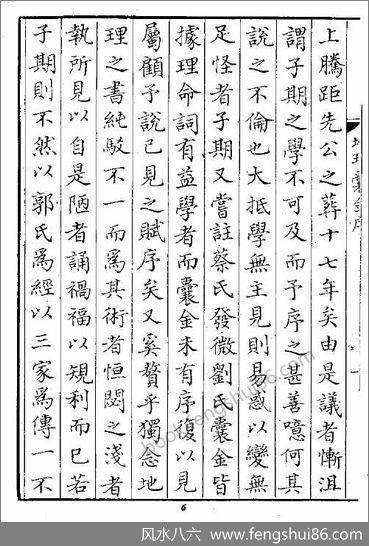 上騰距先公之葬十七年矣由是議者慚沮
謂子期之學不可及而予序之甚善噫何其
說之不倫也大抵學無主見則易惑以變無
足怪者子期又嘗註蔡氏發微劉氏囊金皆
據理命詞有益學者而囊金未有序復以見
屬顧予說已見之賦序矣又奚贅乎獨念地
理之書純駁不一而為其術者恒悶之淺者
執所見以自是陋者誦禍福以規利而已若
子期則不然以郭氏為經以三家為傳一不
6
风水八六 www.fengshui86.com